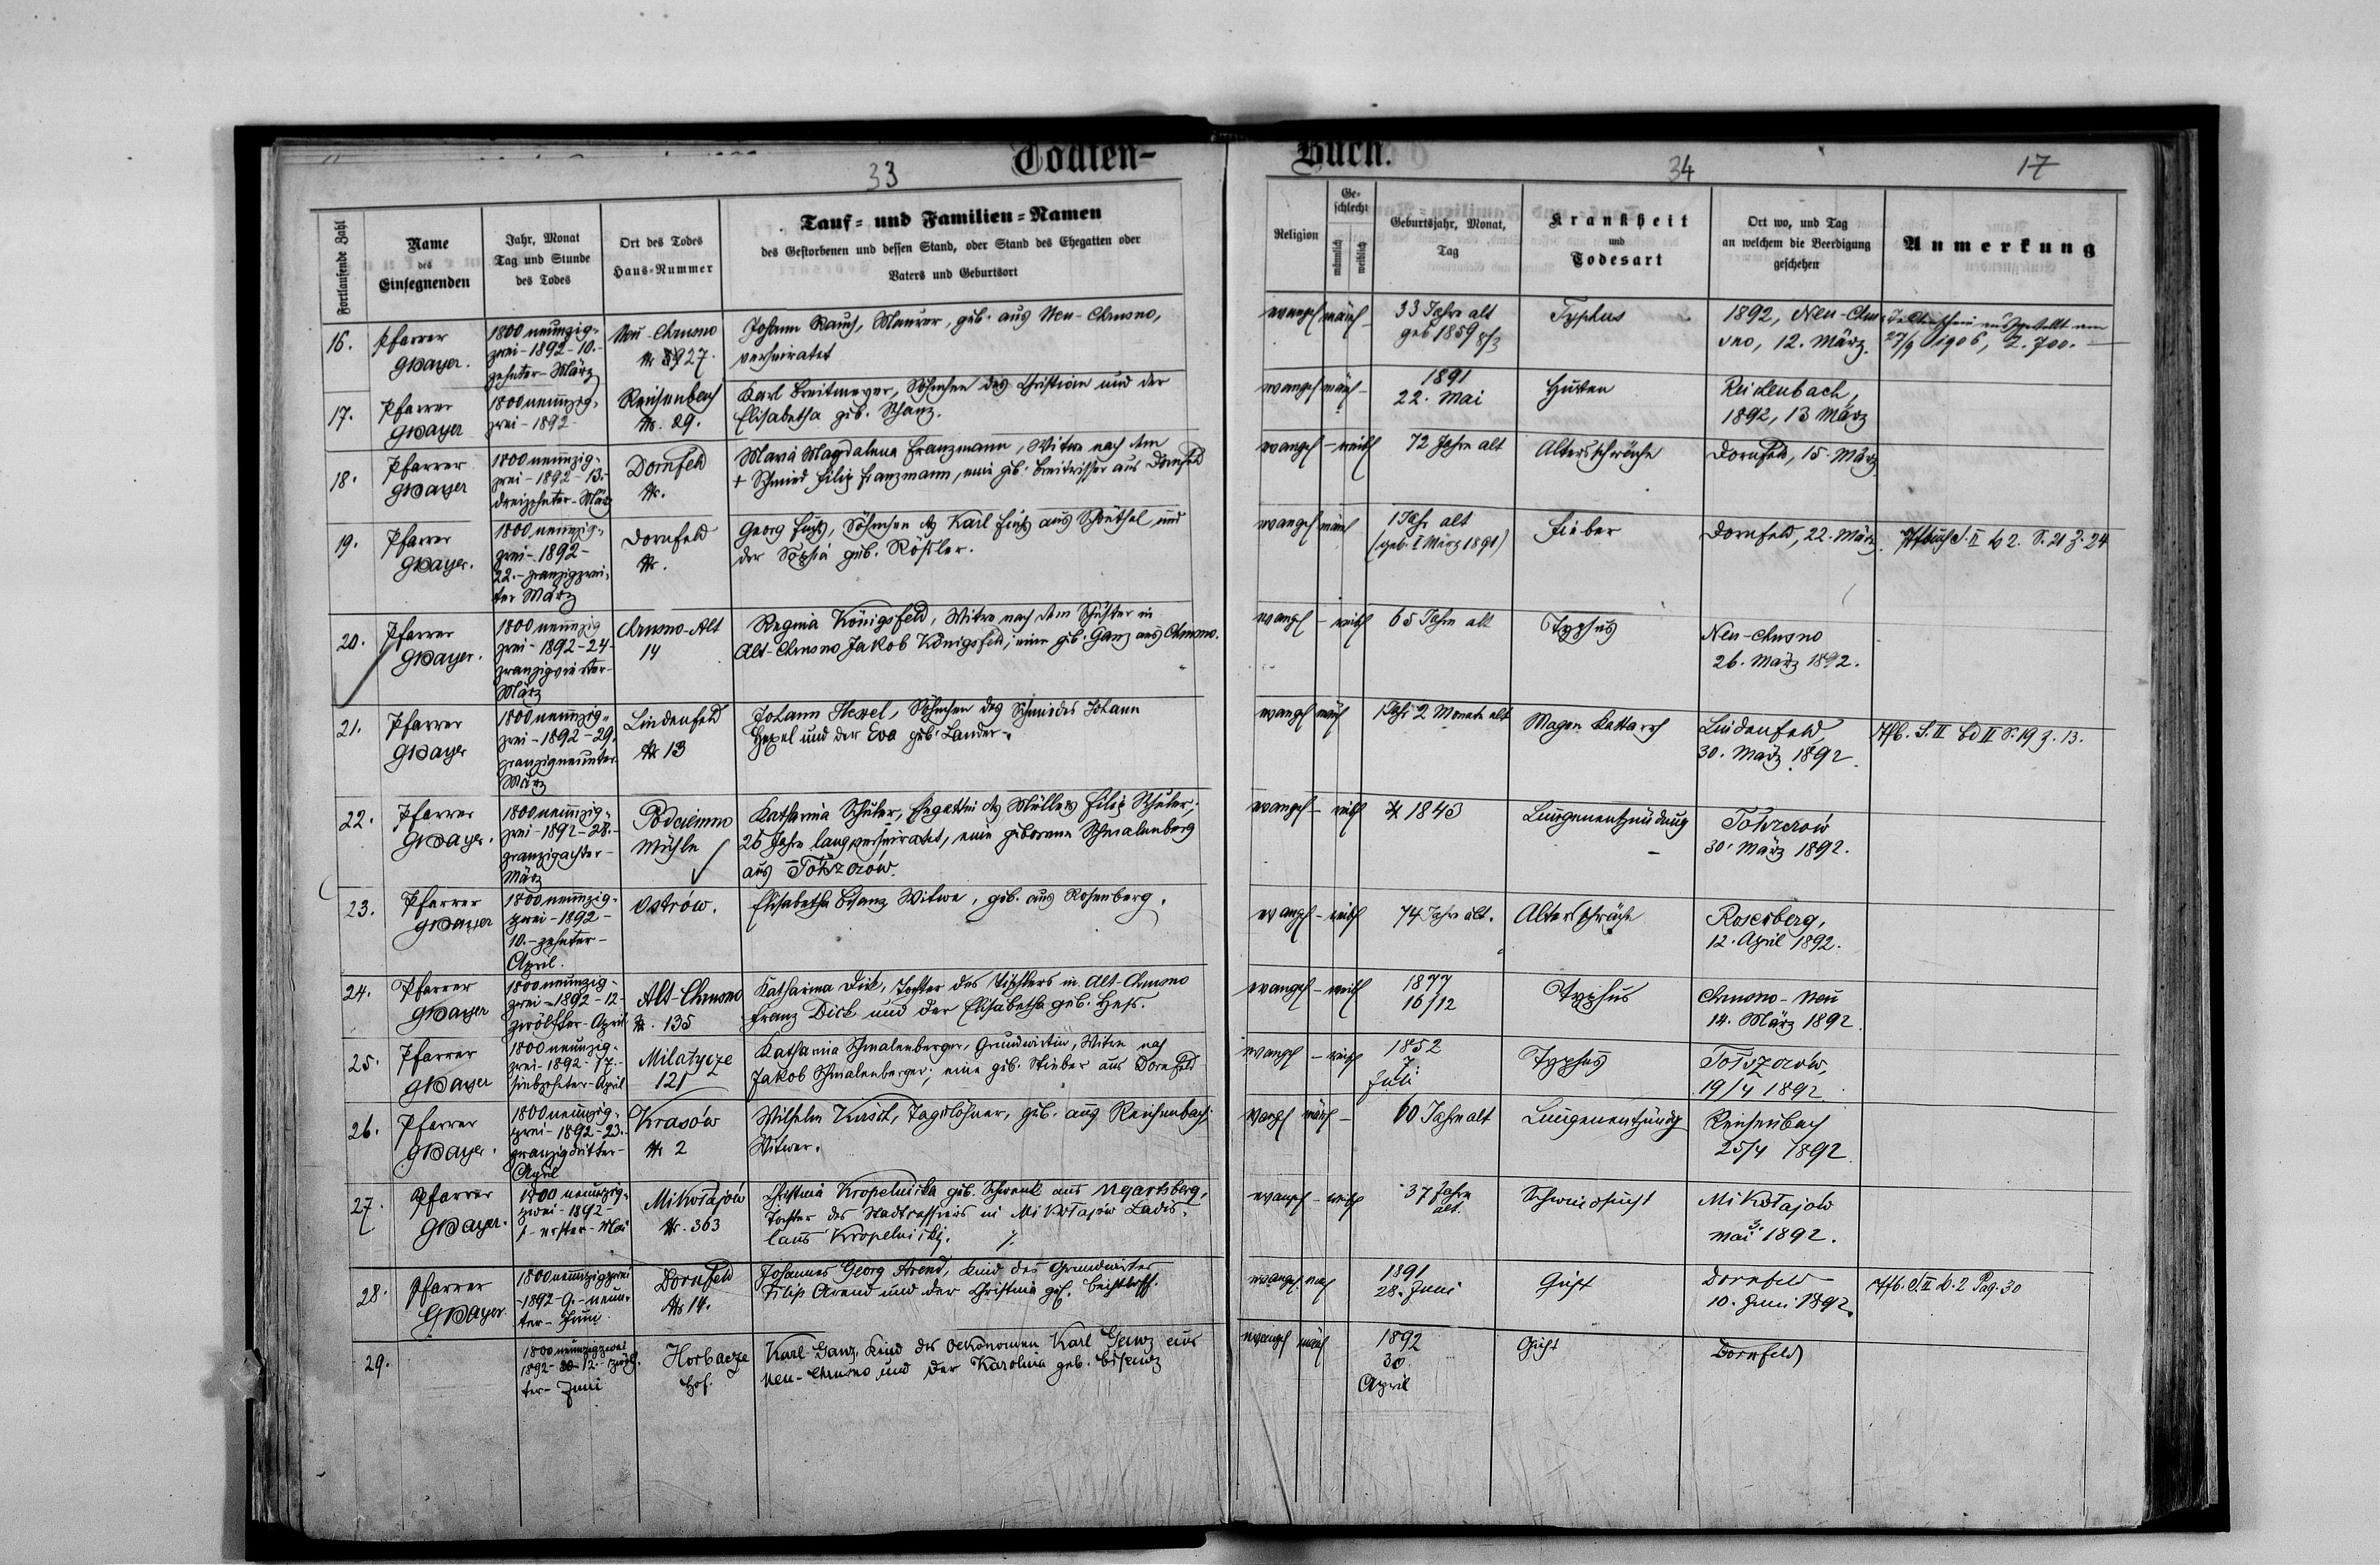 Todten-
Buch.
33
34
17
Fortlaufende Zahl
Name
des
Einsegnenden
Jahr, Monat
Tag und Stunde
des Todes
Ort des Todes
Haus-Nummer
Tauf- und Familien-Namen
des Gestorbenen und dessen Stand, oder Stand des Ehegatten oder
Vaters und Geburtsort
Religion
Ge-
schlecht
männlich
weiblich
Geburtsjahr, Monat,
Tag
Krankheit
und
Todesart
Ort wo, und Tag
an welchem die Beerdigung
geschehen
Anmerkung
16.
Pfarrer
GBayer.
1800 neunzig-
zwei - 1892 - 10. -
zehnter - März
Neu-Chrusno
Nr 27.
Johann Rauch, Maurer, geb. aus Neu-Chrusno,
verheiratet
evangel männl -
33 Jahre alt
geb 1859 8/3
Typhus
1892, Neu-Chru-
sno, 12. März.
Todtenschein ausgestellt am
27/9 1906, Z. 700.
17.
Pfarrer
GBayer
1800 neunzig-
zwei - 1892 -
Reichenbach
Nr. 29.
Karl Breitmeyer, Söhnchen des Christian und der
Elisabetha geb. Schanz.
evangel männl -
1891
22. Mai
Husten
Reichenbach,
1892, 13 März
18.
Pfarrer
GBayer
1800 neunzig-
zwei - 1892 - 13. -
dreizehnter - März
Dornfeld
Nr.
Maria Magdalena Franzmann, Witwe nach dem
+ Schmied Filip Franzmann, eine geb. aus Dornfeld
evangel - weibl
72 Jahre alt
Altersschwäche
Dornfeld, 15. März
19.
Pfarrer
GBayer.
1800 neunzig-
zwei - 1892 -
22. - zwanzigzwei-
ter März
Dornfeld
Nr.
Georg Fuchs, Söhnchen des Karl Fuchs aus und
der Sophia geb. Rößler.
evangel männl
1 Jahr alt
(geb. 1 März 1891)
Fieber
Dornfeld, 22. März.
S. II b 2. S. 21 Z. 24
20.
Pfarrer
GBayer.
1800 neunzig
zwei - 1892 - 24 -
zwanzigvierter -
März
Chrusno-Alt
14
Regina Königsfeld, Witwe nach dem Schuster in
Alt-Chrusno Jakob Königsfeld, eine geb. Ganz aus Chrusno.
evangel - weibl
65 Jahre alt
Typhus
Neu-Chrusno
26. März 1892.
21.
Pfarrer
GBayer
1800 neunzig-
zwei - 1892 - 29.
zwanzigneunter
März
Lindenfeld
Nr 13
Johann Hexel, Söhnchen des Schmiedes Johann
Hexel und der Eva geb. Lander.
evangel männl
1 Jahr 2 Monate alt
Magen Kattarrh
Lindenfeld,
30. März 1892.
S. II Bd II S. 19 Z. 13.
22.
Pfarrer
GBayer.
1800 neunzig-
zwei - 1892 - 28. -
zwanzigachter -
März
Mühle
Katharina Schuler, Ehegattin des Müllers Filip Schuler;
25 Jahre lang verheiratet, eine geborene Schmalenberg
aus
evangel - weibl
1843
Lungenentzündung
30. März 1892.
23.
Pfarrer
GBayer
1800 neunzig-
zwei - 1892 -
10. - zehnter -
April.
Ostrów.
Elisabetha Bisanz Witwe, geb. aus Rosenberg.
evangel - weibl
74 Jahre alt.
Altersschwäche
Rosenberg,
12. April 1892.
24.
Pfarrer
GBayer
1800 neunzig-
zwei - 1892 - 12 -
zwölfter - April
Alt-Chrusno
Nr. 135
Katharina Dick, Tochter des Tischlers in Alt-Chrusno
Franz Dick und der Elisabetha geb. Heß.
evangel - weibl
1877
16/12
Typhus
Chrusno - Neu
14. März 1892.
25.
Pfarrer
GBayer
1800 neunzig-
zwei - 1892 - 17. -
siebzehnter - April
Milatycze
121
Katharina Schmalenberger, Grundwirtin, Witwe nach
Jakob Schmalenberger; eine geb. Stieber aus Dornfeld
evangel - weibl
1852
7
Juli
Typhus
19/4 1892
26.
Pfarrer
GBayer.
1800 neunzig-
zwei - 1892 - 23. -
zwanzigdritter -
April
Krasów
Nr 2
Wilhelm Tagelöhner, geb. aus Reichenbach;
Witwer.
evangel männl -
60 Jahre alt
Lungenentzündg
Reichenbach
25/4 1892.
27.
Pfarrer
GBayer.
1800 neunzig-
zwei - 1892 -
1 - erster - Mai
Mikołajów
Nr. 363
Christina Kropelnicka geb. Schwenk aus Ugartsberg,
Tochter des Stadtcassiers in Mikołajów Ladis-
laus Kropelnicki.
evangel - weibl
37 Jahre
alt.
Schwindsucht
Mikołajów
3.
Mai 1892.
28.
Pfarrer
GBayer.
1800 neunzigzwei
- 1892 - 9. - neun-
ter - Juni
Dornfeld
Nr 14.
Johannes Georg Arend, Kind des Grundwirtes
Filip Arend und der Christina geb.
evangel männl
1891
28. Juni
Gicht
Dornfeld
10. Juni 1892.
S. II b. 2 Pag. 30
29.
1800 neunzigzwei
1892 - 12. - zwölf-
ter - Juni
Horbacze
Hof.
Karl Ganz, Kind des Oekonomen Karl Ganz aus
Neu-Chrusno und der Karolina geb. Bisanz
evangel männl
1892
30
April
Gicht
Dornfeld